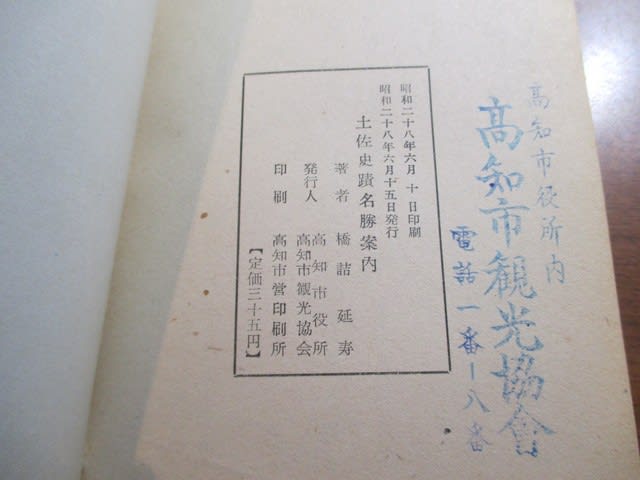 高知市役所内
高知市観光協會
電話一番ー八番
昭和二十八年六月 十 日印刷
昭和二十八年六月十五日発行
土佐史蹟名勝案内
著者 橋詰延寿
発行人 高知市役所
高知市観光協会
印刷 高知市営印刷所
【定価三十五円】